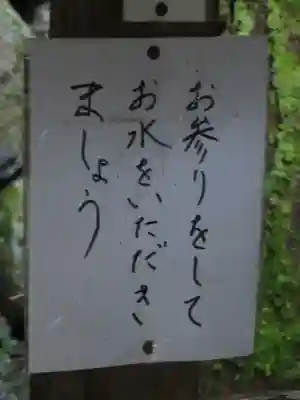 お参りをして
お水をいただき
ましょう